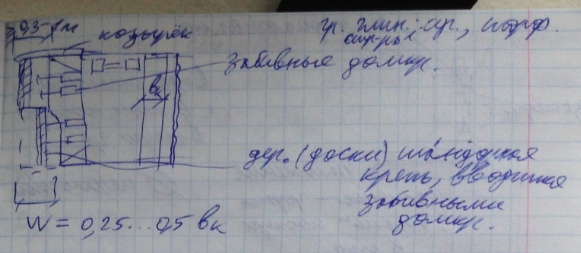 0,35-1м
козырёк
гр. глин. ср., нофр.
забивные домкр.
в
дер. (доски) шандорная
крепь, вводимая
забивными
домкр.
W = 0,25...0,5 вк